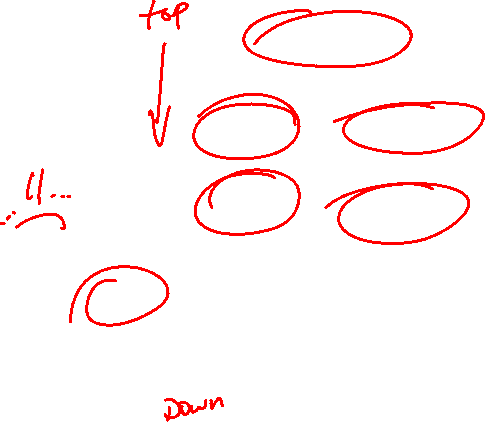 top
Down